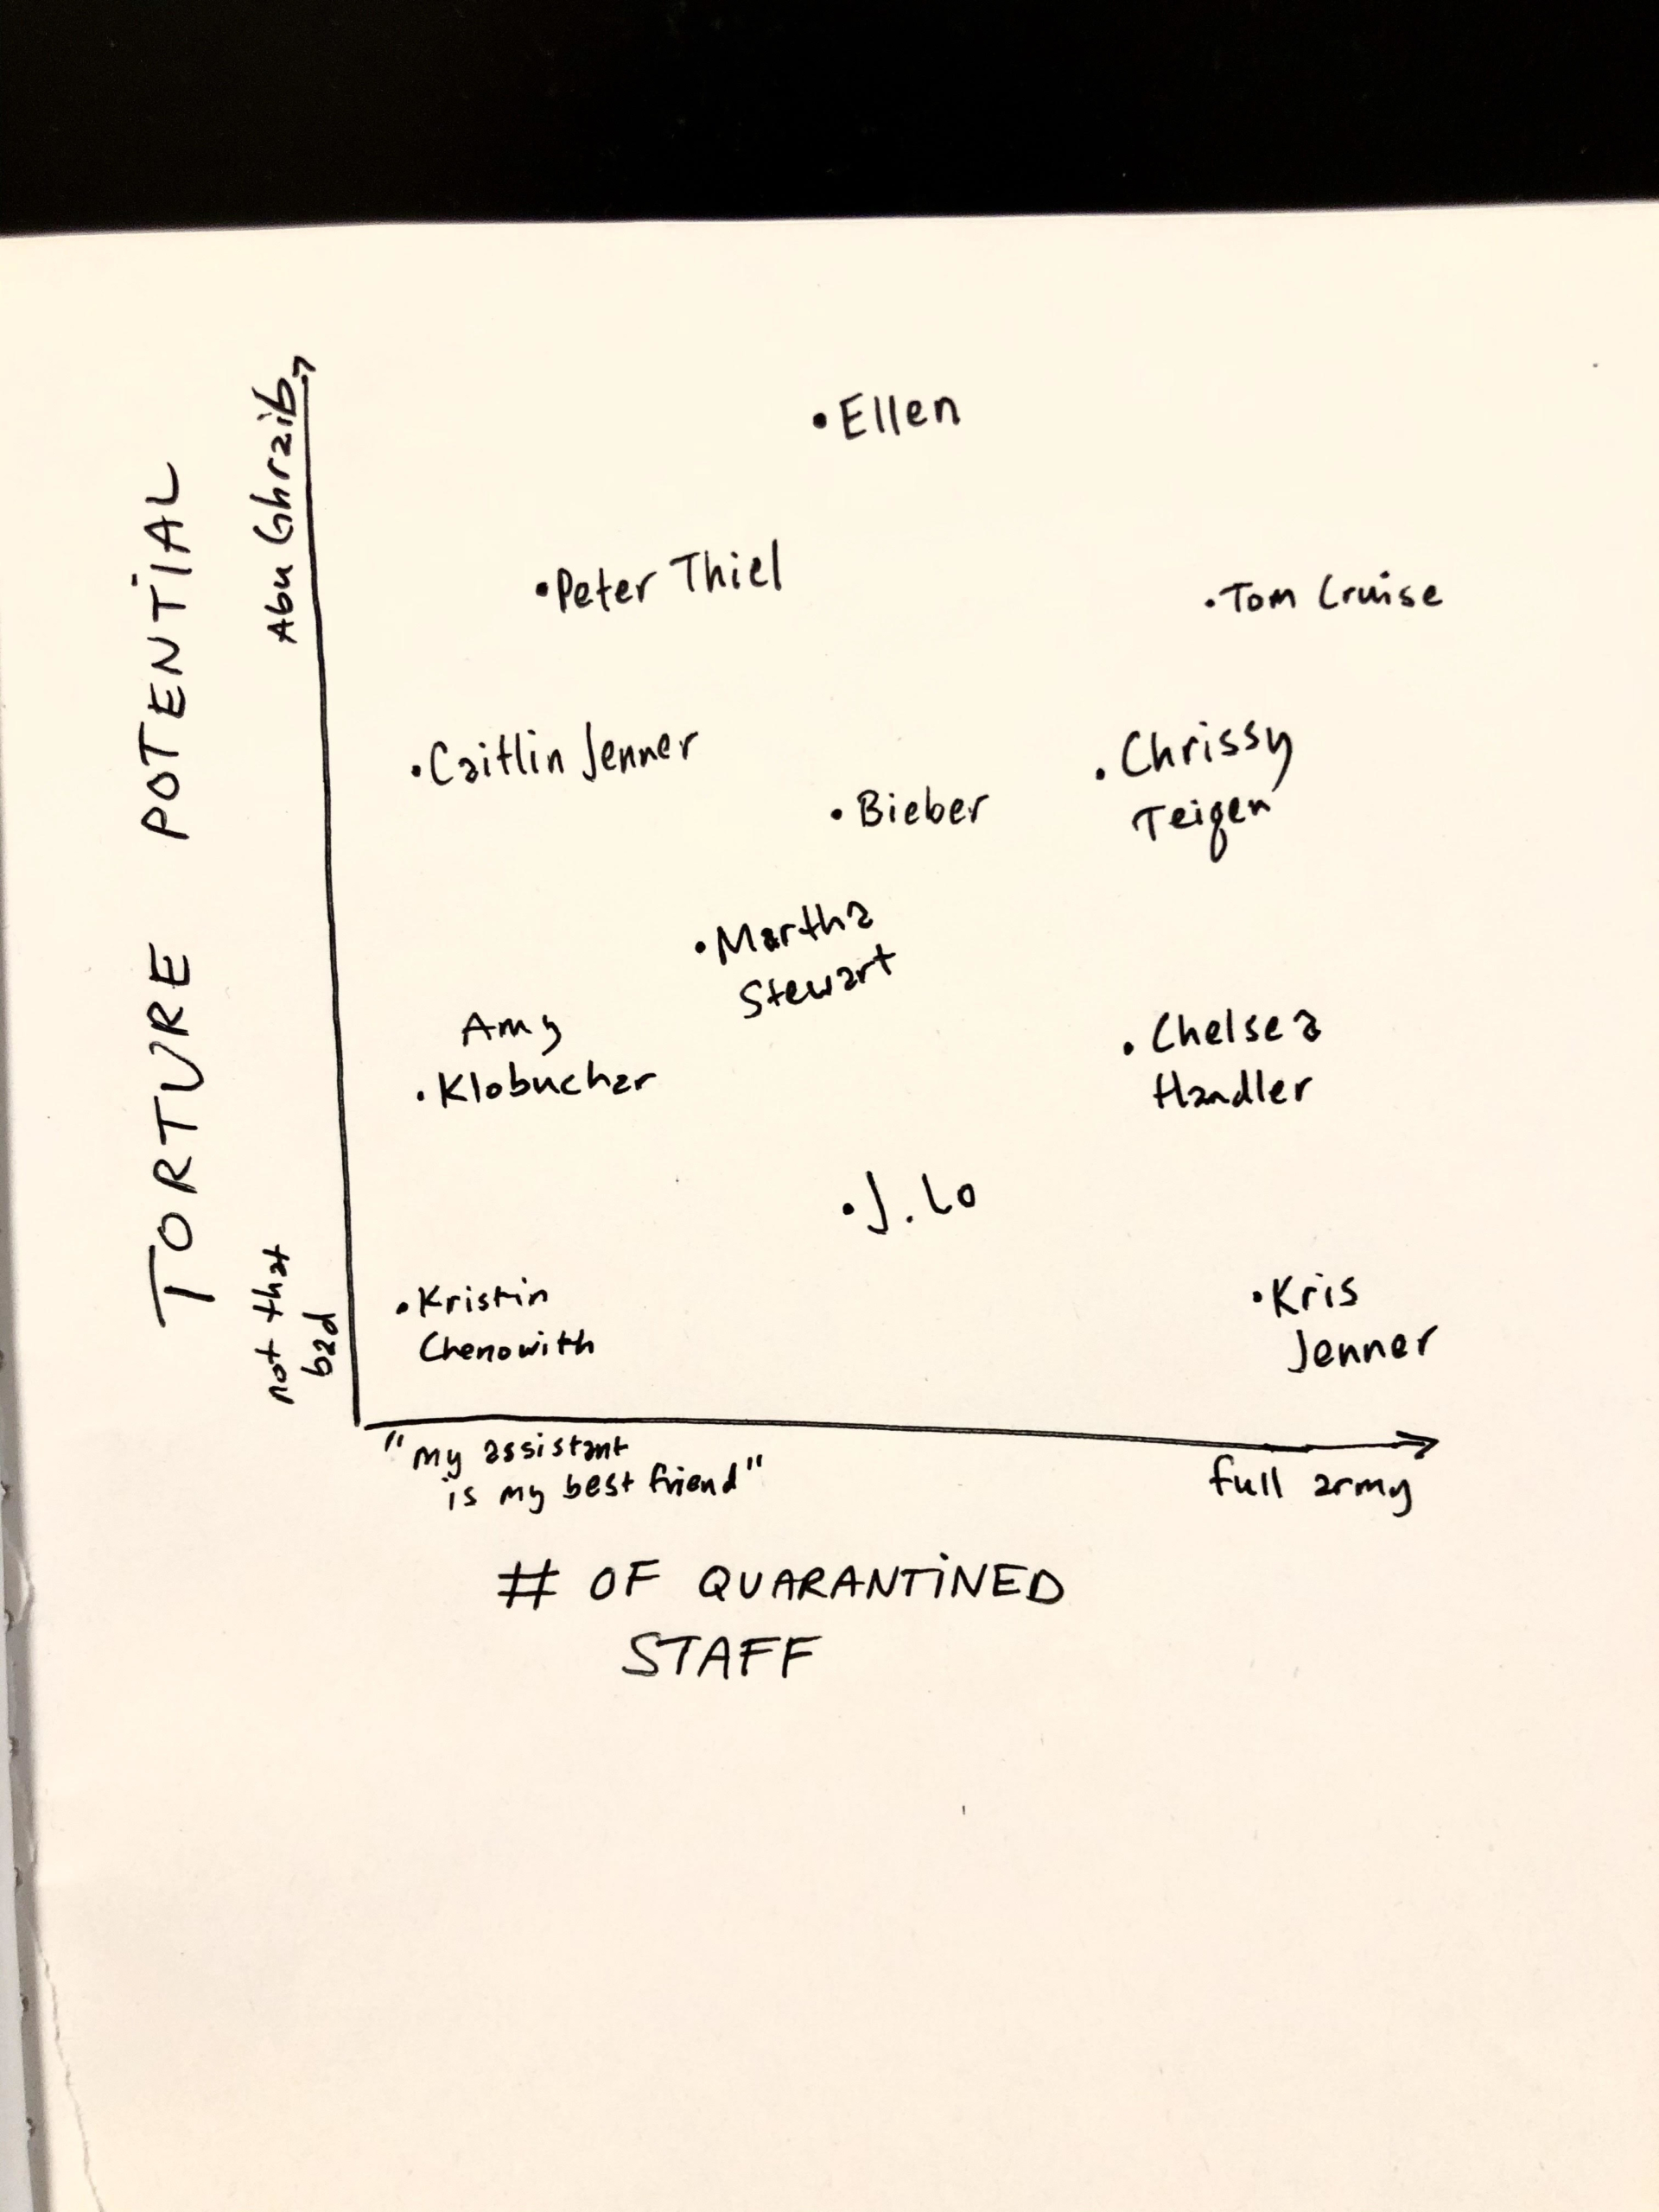 TORTURE POTENTIAL
Abu Ghraib
not that
bad
• Ellen
• Peter Thiel
• Tom Cruise
• Caitlin Jenner
• Chrissy
Teigen
• Bieber
• Martha
Stewart
Amy
• Klobuchar
• Chelsea
Handler
• J. Lo
• Kristin
Chenowith
• Kris
Jenner
"my assistant
is my best friend"
full army
# OF QUARANTINED
STAFF